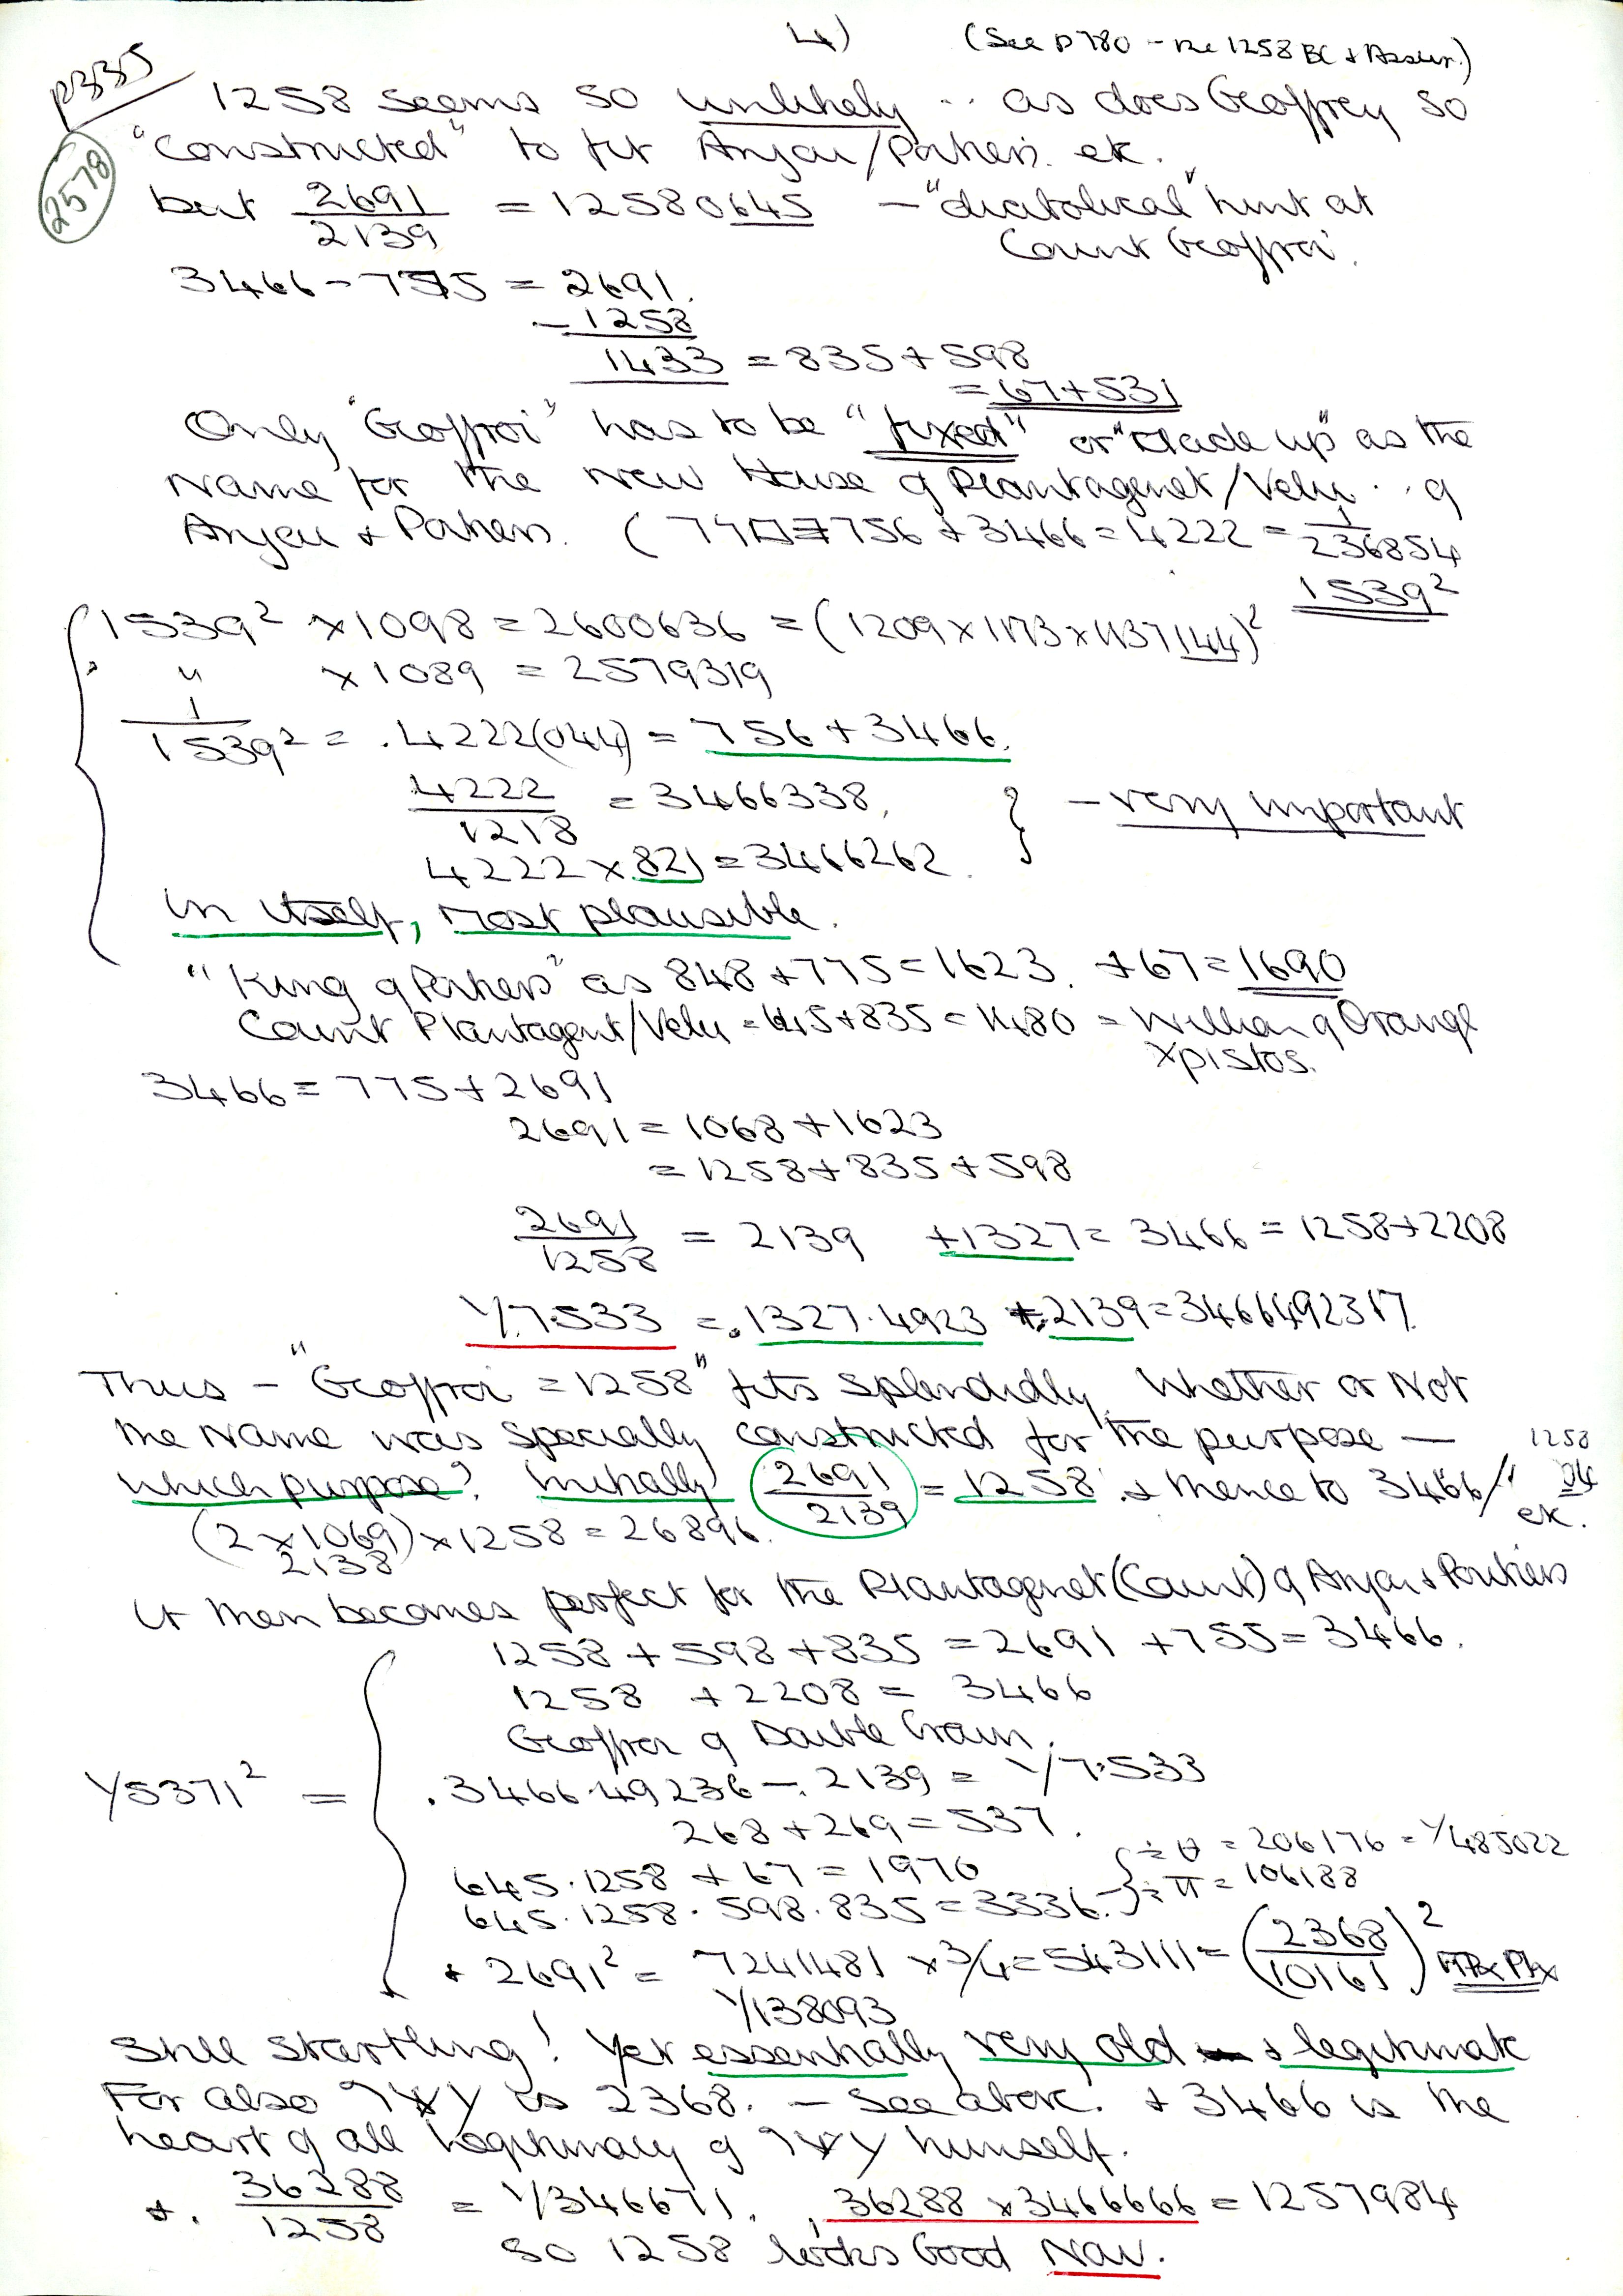 4)
(See p780 - re 1258 BC + Assur.)
p335
2578
1258 seems so unlikely .. as does Geoffrey so
"constructed" to fit Anjou/Poitiers. etc.
but 2691/2139 = 12580645 - "diabolical" hint at
Count Geoffroi.
3466 - 775 = 2691.
- 1258
1433 = 835 + 598
= 67 + 531
Only "Geoffroi" has to be "fixed" or "made up" as the
Name for the New House of Plantagenet/Velu .. of
Anjou + Poitiers. ( 756 + 3466 = 4222 = 1/236854
1539²
1539² x 1098 = 2600636 = (1209 x 1173 x 1137144)²
" x 1089 = 2579319
1/1539² = .4222(044) = 756 + 3466.
4222/1218 = 3466338.
4222 x .821 = 3466262. } - very important
in itself, most plausible.
"King of Poitiers" as 848 + 775 = 1623. + 67 = 1690
Count Plantagent/Velu = 645 + 835 = 1480 = William of Orange
Xpistos.
3466 = 775 + 2691
2691 = 1068 + 1623
= 1258 + 835 + 598
2691/1258 = 2139 + 1327 = 3466 = 1258 + 2208
1/7.533 = .1327.4923 + .2139 = 3466492317.
Thus - "Geoffroi = 1258" fits splendidly. Whether or Not
the Name was specially constructed for the purpose —
which purpose? Initially 2691/2139 = 1258. + thence to 3466/
1258
etc.
(2 x 1069) x 1258 = 26896.
2138
It then becomes perfect for the Plantagenet (Count) of Anjou + Poitiers
1258 + 598 + 835 = 2691 + 755 = 3466.
1258 + 2208 = 3466
Geoffroi of Double Crown.
1/5371² = { .3466.49236 - .2139 = 1/7.533
268 + 269 = 537.
645.1258 + 67 = 1970
645.1258.598.835 = 3336. } ÷ θ = 206176 = 1/485022
÷ π = 106188
+ 2691² = 7241481 x 3/4 = 543111 = (2368/10161)²
1/138093
Still startling! Yet essentially very old + legitimate
For also is 2368. - See above. + 3466 is the
heart of all legitimacy of himself.
+. 36288/1258 = 1/346671. , 36288 x 3466666 = 1257984
So 1258 looks Good Now.